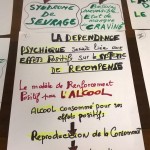 SYNDROME
de
SEVRAGE
CRAVING
LA DEPENDANCE
PSYCHIQUE serait liée aux
effets Positifs sur le système
de RECOMPENSE
Le modèle de Renforcement
Positif par L'ALCOOL
ALCOOL consommé pour ses
effets positifs
Reproduction de la Consommat